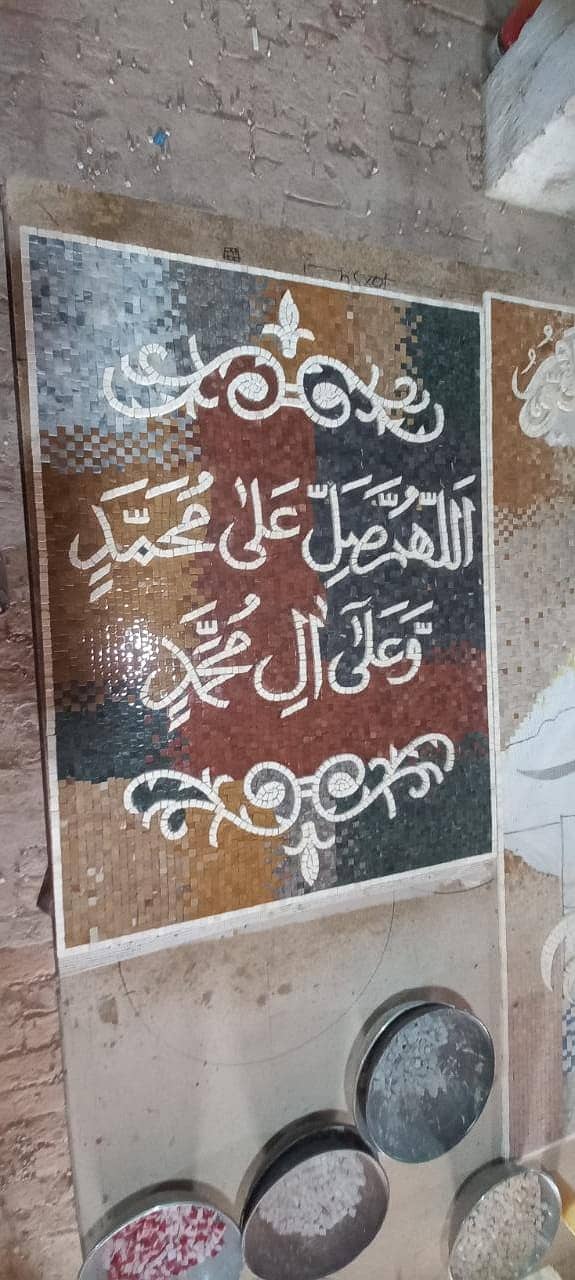 اَللّٰهُمَّ صَلِّ عَلٰی مُحَمَّدٍ
وَّعَلٰٓی اٰلِ مُحَمَّدٍ